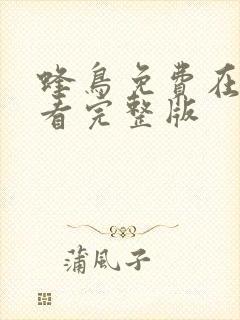 蜂鳥免費在
看完整版
蒲風子